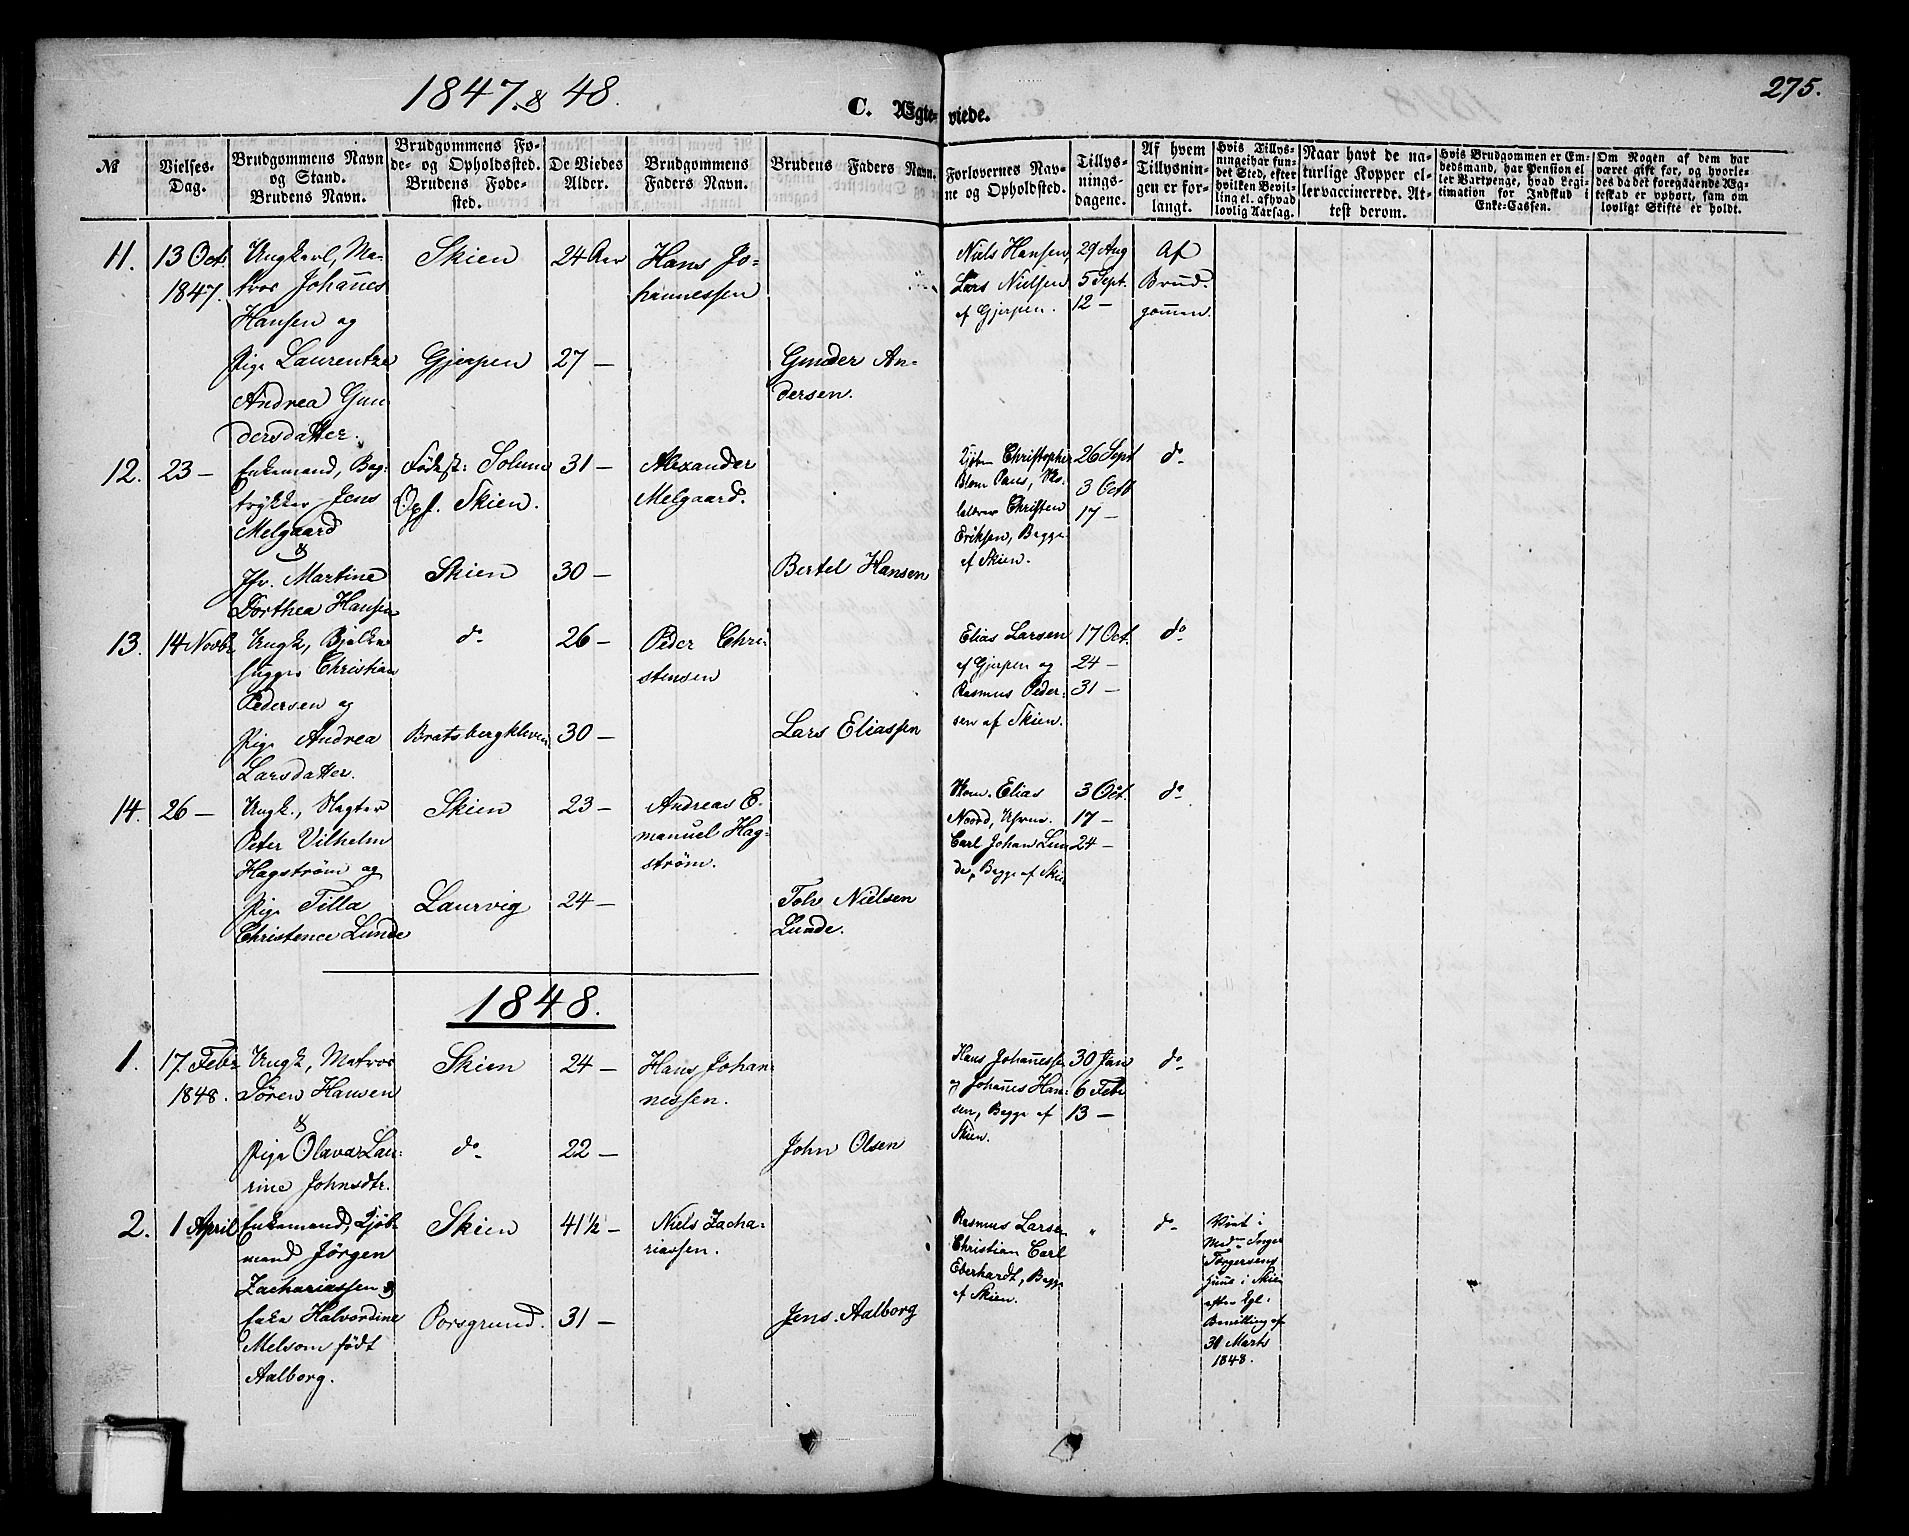 1847 & 48.
C. Ægteviede.
275.
№
Vielses-
Dag.
Brudgommens Navn
og Stand.
Brudens Navn.
Brudgommens Fø-
de- og Opholdssted.
Brudens Føde-
sted.
De Viedes
Alder.
Brudgommens
Faders Navn.
Brudens Faders Navn.
Forlovernes Nav-
ne og Opholdsted.
Tillys-
nings-
dagene.
Af hvem
Tillysnin-
gen er for-
langt.
Hvis Tillys-
ningei har fun-
det Sted, efter
hvilken Bevil-
ling el. af hvad
lovlig Aarsag.
Naar havt de na-
turlige Kopper el-
ler vaccinerede. At-
test derom.
Hvis Brudgommen er Em-
bedsmand, har Pension el-
ler Vartpenge, hvad Legi-
timation for Indskud i
Enke-Cassen.
Om Nogen af dem har
været gift før, og hvorle-
des da det foregaaende Æg-
teskab er ophørt, sam om
lovligt Skifte er holdt.
11.
13 Oct.
1847.
Ungkarl, Ma-
tros Johanes
Hansen og
Pige Laurentze
Andrea Gun-
dersdatter.
Skien
Gjerpen
24 Aar
27 —
Hans Jo-
hannessen
Gunder An-
dersen.
Niels Hansen,
Lars Nielsen
af Gjerpen.
29 Aug
5 Sept.
12 —
Af
Brud-
gomen.
12.
23 —
Enkemand, Bog-
trykker Jens
Melgaard
&
Jfr. Martine
Dorthea Hansen
Födest: Solum
Opf. Skien.
Skien
31 —
30 —
Alexander
Melgaard.
Bertel Hansen
Kjöbm Christopher
Blom Paus,
Christen
Eriksen, Begge
af Skien.
26 Sept
3 Octb
17 —
do
13.
14 Novbr
Ungk, Bjelke-
hugger Christian
Pedersen og
Pige Andrea
Larsdatter.
do
Bratsbergkleven
26 —
30 —
Peder Chri-
stensen
Lars Eliassen
Elias Larsen
af Gjerpen og
Rasmus Peder-
sen af Skien.
17 Oct.
24 —
31 —
do
14.
26 —
Ungk., Slagter
Peter Vilhelm
Hagström og
Pige Tilla
Christence Lunde
Skien
Laurvig
23 —
24 —
Andreas E-
manuel Hag-
strøm.
Tolv Nielsen
Lunde.
Elias
Noord,
Carl Johan Lun
de, Begge af Skien
3 Oct.
17 —
24 —
do
1848.
1.
17. Febr
1848.
Ungk, Matros
Sören Hansen
&
Pige Olava Lau-
rine Johnsdtr.
Skien
do
24 —
22 —
Hans Johan-
nessen.
John Olsen
Hans Johanessen
og Johanes Han-
sen, Begge af
Skien.
30 Jan
6 Febr
13 —
do
2.
1 April
Enkemand, Kjöb-
mand Jörgen
Zachariassen &
Enke Halvordine
Melsom födt
Aalborg.
Skien
Porsgrund.
41½ —
31 —
Niels Zacha-
riassen.
Jens Aalborg
Rasmus Larsen
Christian Carl
Eberhardt, Begge
af Skien.
"
do
Viet i
Mad. Inger
Torgersens
Huus i Skien
efter Kgl.
Bevilling af
30 Marts
1848.